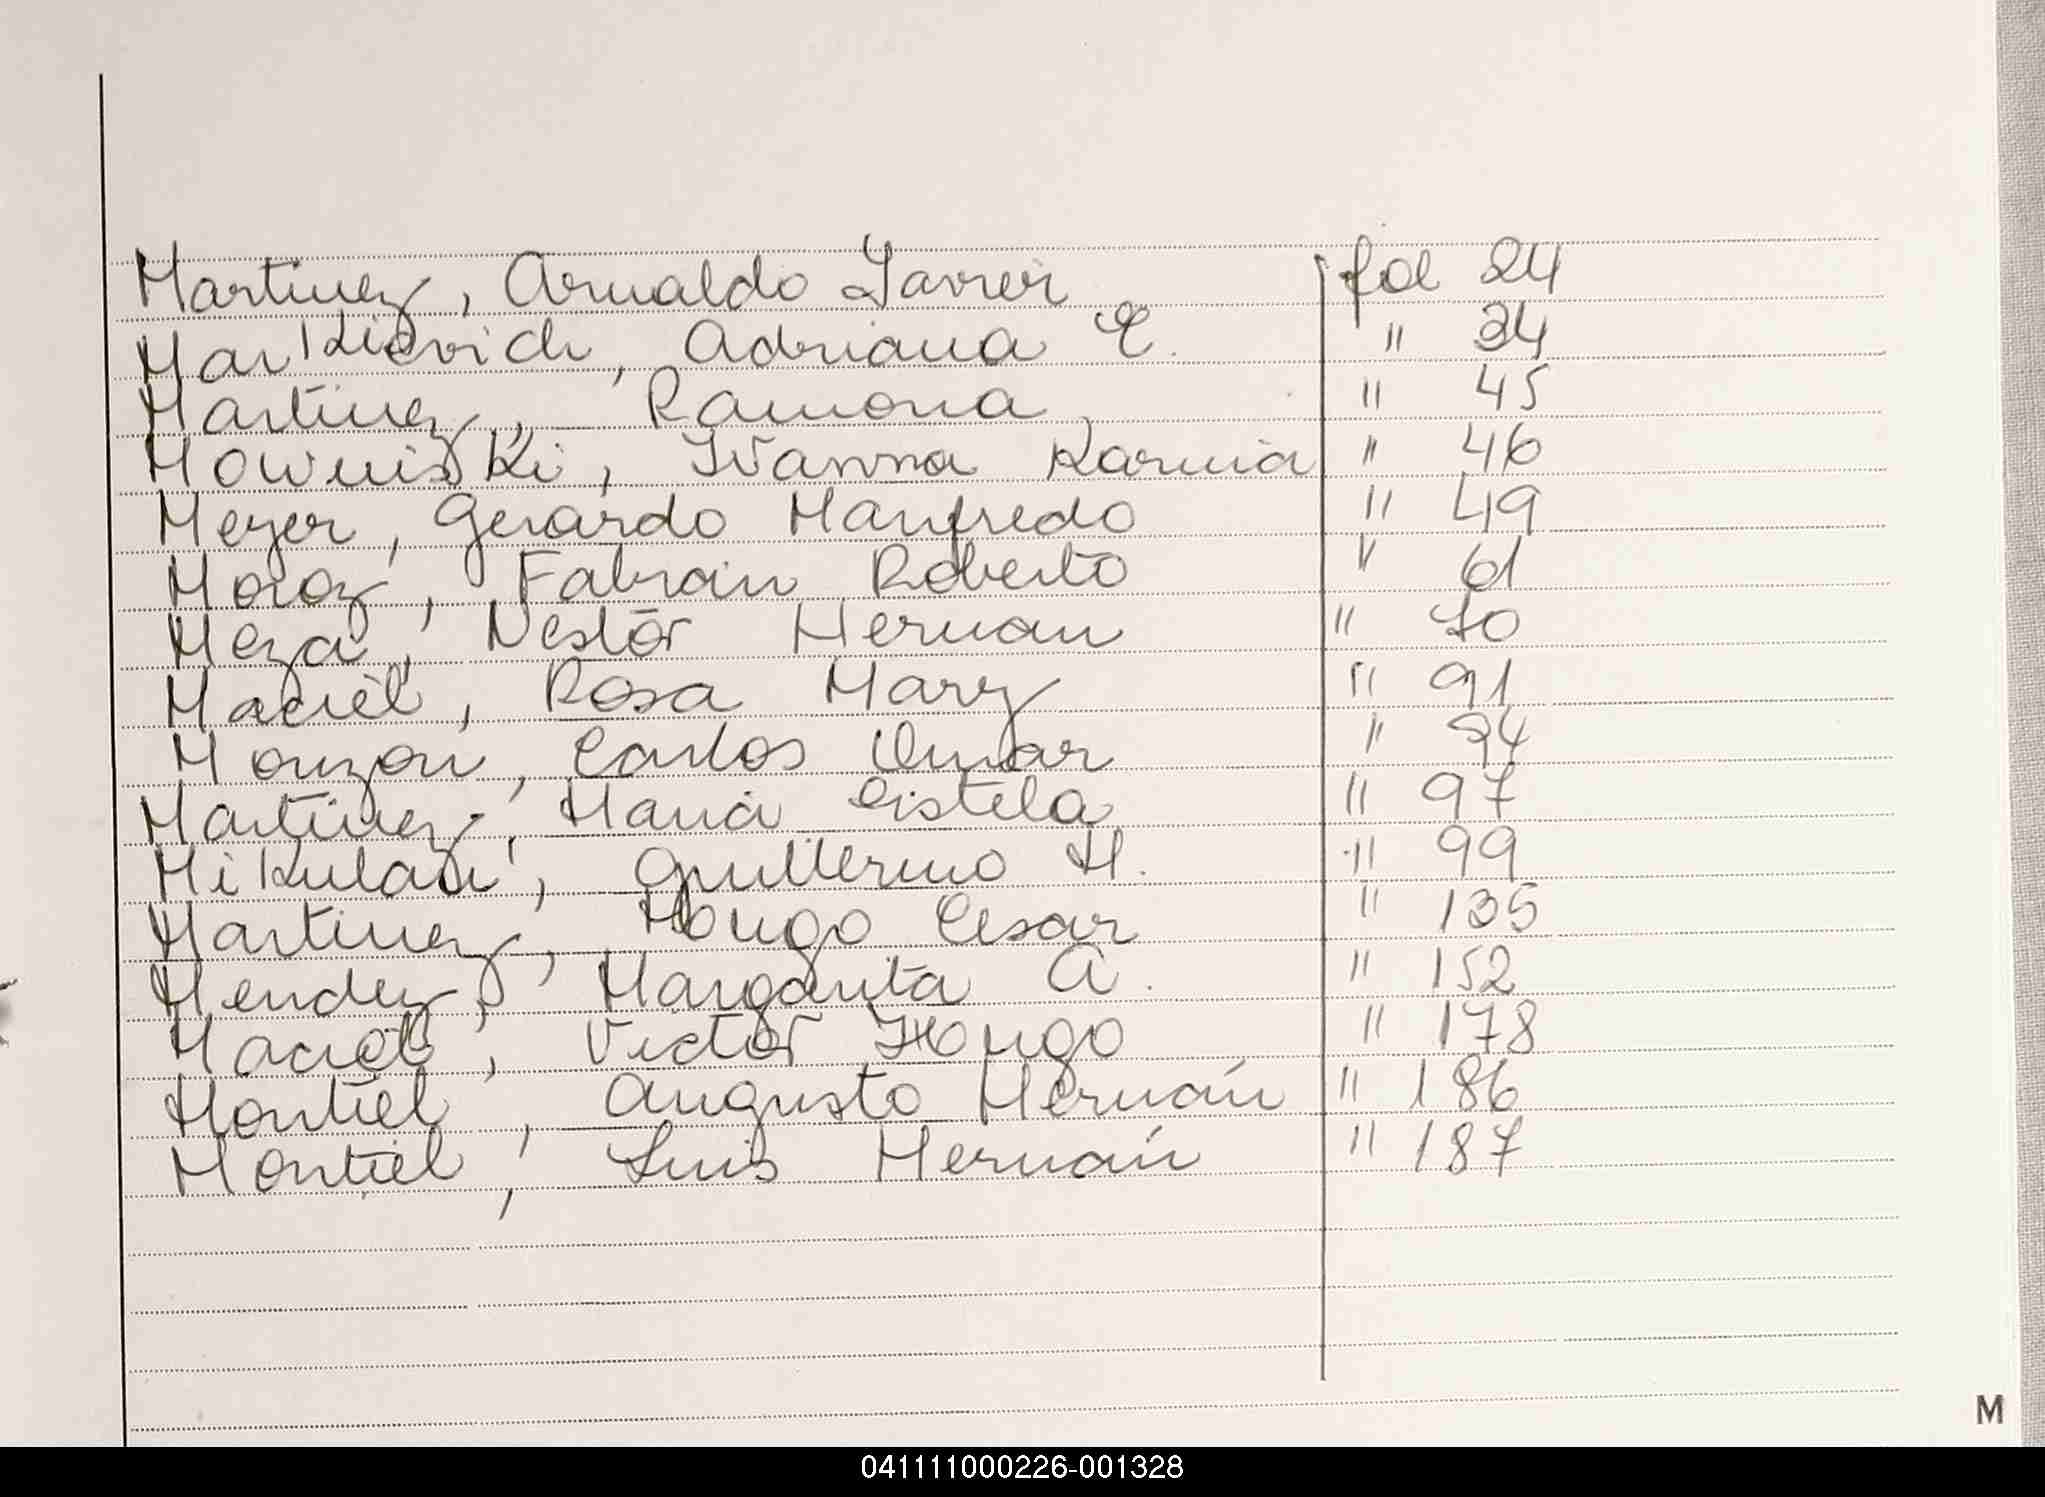 Martinez, Arnaldo Javier fol 24
Markievich, Adriana E. " 34
Martinez, Ramona " 45
Mowniski, Ivanna Karina " 46
Meyer, Gerardo Manfredo " 49
Moroz, Fabian Roberto " 61
Meza, Nestor Hernan " 70
Maciel, Rosa Mary " 91
Monzon, Carlos Omar " 94
Martinez, Maria Estela " 97
Guillermo H. " 99
Martinez, Hugo Cesar " 135
Mendez, Margarita A. " 152
Maciel, Victor Hugo " 178
Montiel, Augusto Hernán " 186
Montiel, Luis Hernán " 187
M
041111000226-001328